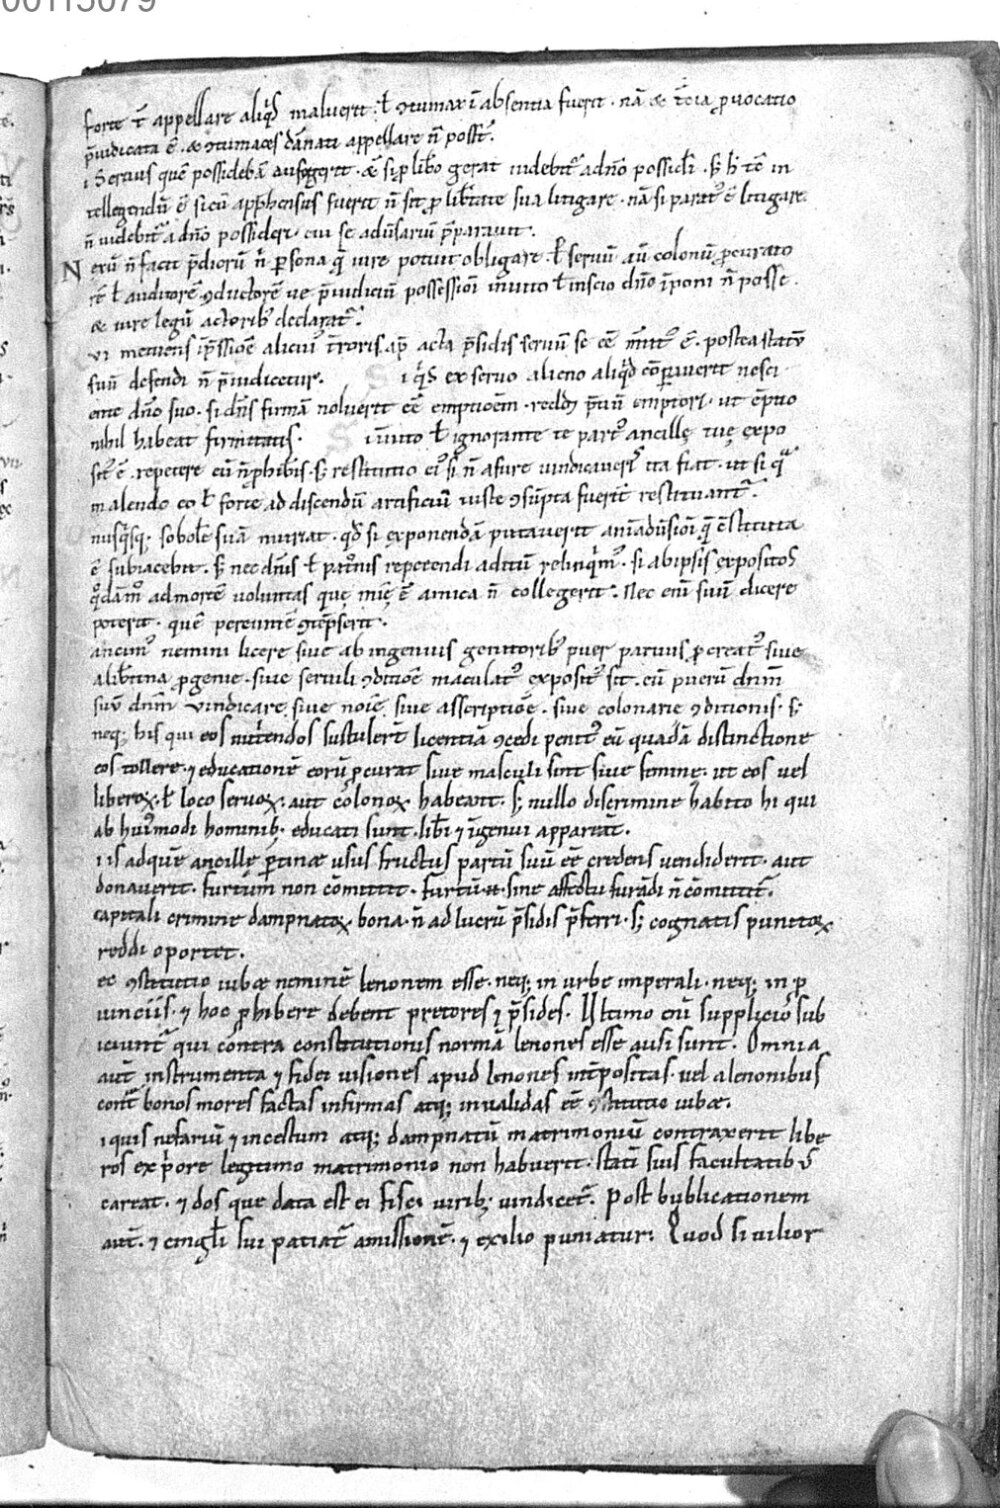 00115079
forte t̄ appellare aliq̇d maluerit ł ꝯtumax ī absentia fuerit · nā & t̄cia ꝓuocatio
p̄iudicata ē · & ꝯtumaces dānati appellare n̄ poss̄t.
i Seruus quē possidebā aufugerit · &̄ si ꝓ lib̄o gerat uidebit᷑ a dn̄o possideri · s; h̄ t̄c in
tellegendū ē si cū app̄hensus fuerit n̄ sit ꝓ lib̄tate sua litigare · nā si parat᷑ ē litigare
n̄ uidebit᷑ a dn̄o possideri · cui se adūsariū p̄parauit.
N exū n̄ facit p̄diorū n̄ ꝑsona q̄ iure potuit obligare · ł seruū aū colonū ꝓcurato
rē ł auditorē ꝯductorē ue p̄iudiciū possessioī inuito ł inscio dn̄o īponi n̄ posse ·
& iure legū actorib; declarat᷑.
vi metuens īp̄ssionē alicui᷑ t̄roris ap̄ acta p̄sidis seruū se ee̅ m̄tit᷑ ē · postea statū
suū defendi n̄ p̄iudicetur. i q̇s ex seruo alieno aliq̇d cōparauerit nesci
ente dn̄o suo · si dn̄s firmā noluerit ee̅ emptioēm · reddi p̄tiū emptori · ut ēptio
nihil habeat firmitatis. īuito ł ignorante te part᷑ ancillę tuę expo
sit᷑ ē · repetere eū n̄ ꝓhib̄is · s; restitutio ei᷑ si n̄ a fure uindicaueris ita fiat · ut si q̄
in alendo eo ł forte ad discendū artificiū iuste ꝯsūpta fuerit restituant᷑.
nusq̇sq; sobolē suā nutriat · qd̄ si exponendā putauerit animaduersioī q̄ ꝯstituta
ē subiacebit · s; nec dn̄is ł pat̄nis repetendi aditū relinq̇m᷑ · si ab ipsis expositos
q̇dām᷑ ad mortē uoluntas que mic̄e amica n̄ collegerit. Nec enī suū dicere
poterit · quē pereuntē ꝯtēpserit.
ancim᷑ nemini licere siue ab ingenuis genitorib; puer paruus ꝓcreat᷑ siue
alib̄tina ꝓgenie · siue seruili ꝯditionē maculat᷑ exposit᷑ sit · eū puerū dnīn
suū dnīn uindicare siue noīe siue asscriptione · siue colonarie ꝯditionis · s;
neq; his qui eos nutriendos sustuler̄t licentiā ꝯcedi penit᷑ cū quadā distinctione
eos tollere · ⁊ educationē eorū ꝓcurat siue masculi sint siue femine · ut eos uel
liberoꝝ · ł loco seruoꝝ · aut colonoꝝ habeant · s; nullo discrimine habito hi qui
ab hui᷑modi hominib; educati sunt · lib̄i ⁊ īgenui appareāt.
i is ad quē ancillę ꝑtin& usus fructus partū suū ee̅ credens uendiderit · aut
donauerit · furtum non cōmittit · furtū · n · sine affectu furādi n̄ cōmittit᷑.
capitali crimine dampnatoꝝ bona · n̄ ad lucrū p̄sidis p̄ferri · s; cognatis punitoꝝ
reddi oportet.
ec ꝯstitutio iub& neminē lenonem esse · neq; in urbe imperali · neq; in ꝓ
uinciis · ⁊ hoc ꝓhibere debent pretores ⁊ p̄sides · Ultimo enī supplicio sub
iciunt᷑ qui contra constitutionis normā lenones esse ausi sunt. Omnia
aut̄ instrumenta ⁊ fidei uisiones apud lenones int̄positas · uel a lenonibus
cont᷑ bonos mores factas infirmas atq; inualidas ee̅ ꝯstitutio iub&.
i quis nefariū ⁊ incestum atq; dampnatū matrimoniū contraxerit libe
ros ex p̄ore legitimo matrimonio non habuerit · statī suis facultatib;
careat · ⁊ dos que data est ei fisci uirib; uindicet᷑. Post byblicationem
aut̄ · ⁊ cinguli sui patiat᷑ amissionē · ⁊ exilio puniatur. Quod si uilior